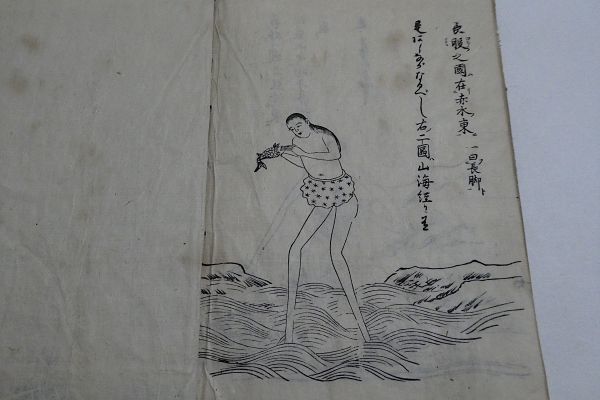 長股之國在赤水東 一曰長脚ト
足ながしなるべし右二國山海經ニ